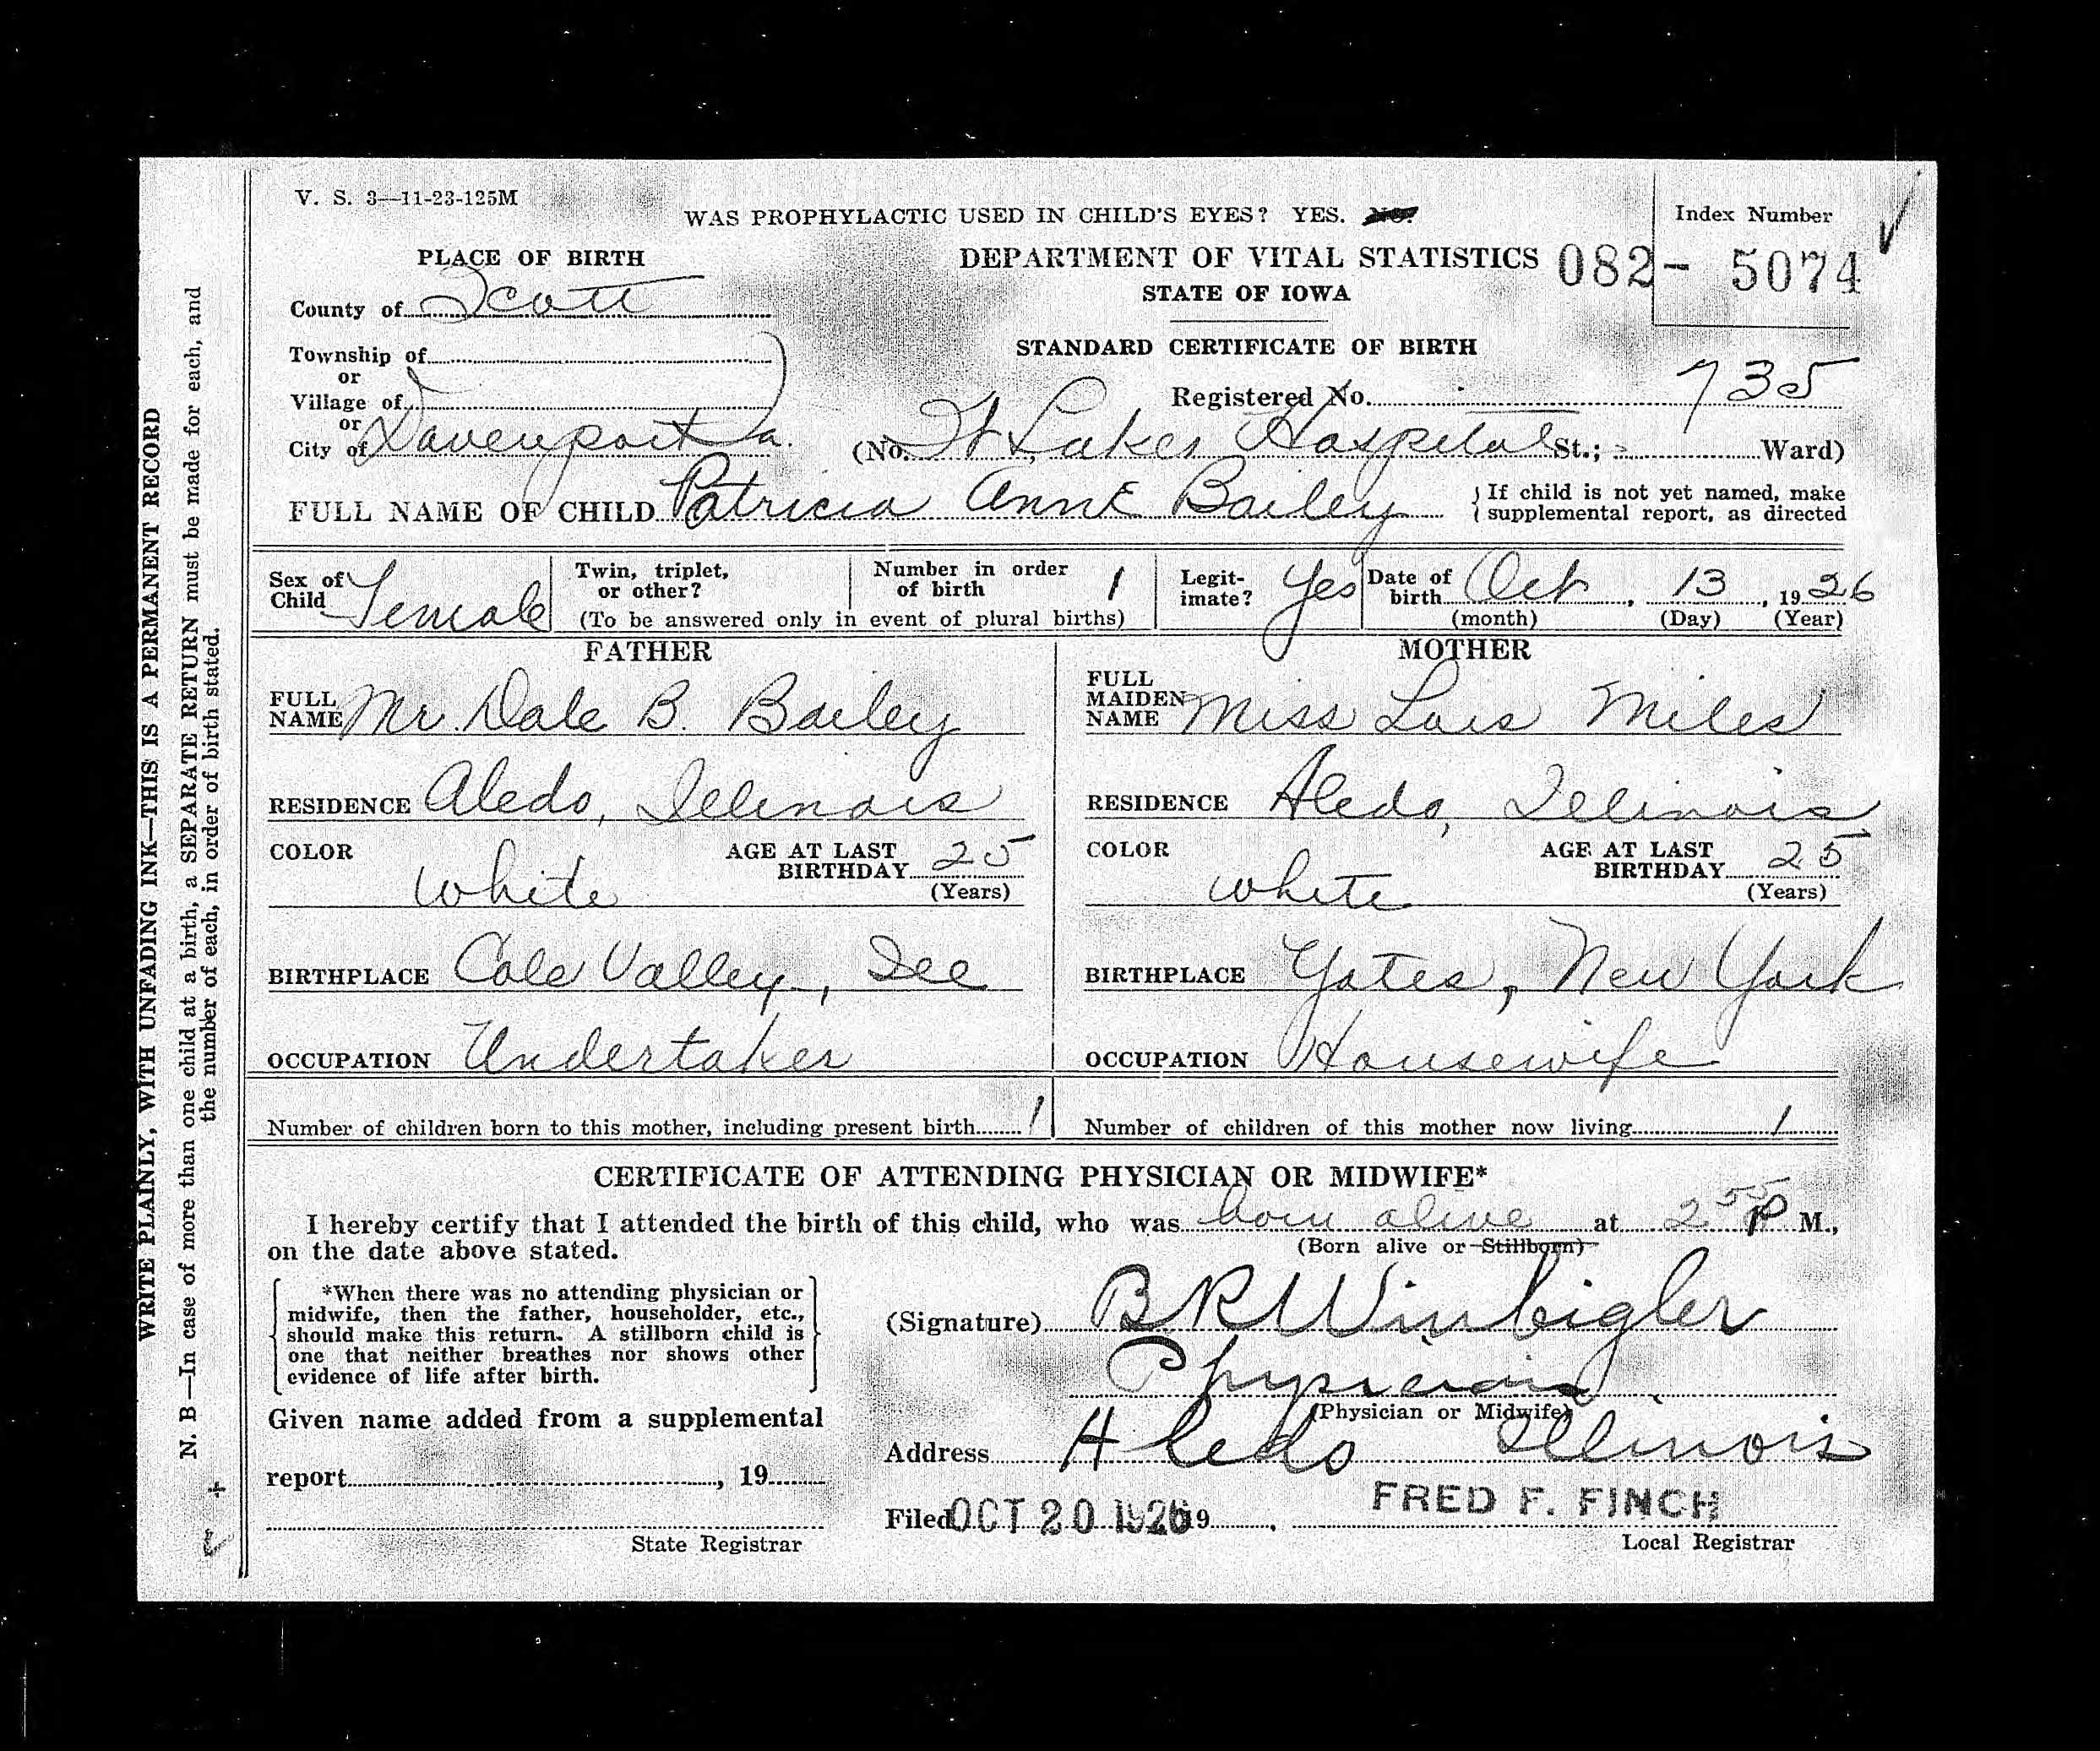 V. S. 3—11-23-125M
WAS PROPHYLACTIC USED IN CHILD'S EYES? YES. NO.
Index Number
PLACE OF BIRTH
DEPARTMENT OF VITAL STATISTICS
082- 5074
STATE OF IOWA
County of Scott
STANDARD CERTIFICATE OF BIRTH
Township of
or
Registered No. 735
Village of
or
City of Davenport Ia. (No. St Lukes Hospital St.; Ward)
FULL NAME OF CHILD Patricia Anne Bailey
If child is not yet named, make
supplemental report, as directed
Sex of Child Female
Twin, triplet, or other?
Number in order of birth 1
(To be answered only in event of plural births)
Legitimate? Yes
Date of birth Oct, 13, 1926
(month) (Day) (Year)
FATHER
FULL NAME Mr. Dale B. Bailey
RESIDENCE Aledo, Illinois
COLOR White
AGE AT LAST BIRTHDAY 25
(Years)
BIRTHPLACE Cole Valley, Ill
OCCUPATION Undertaker
MOTHER
FULL MAIDEN NAME Miss Lois Miles
RESIDENCE Aledo, Illinois
COLOR White
AGE AT LAST BIRTHDAY 25
(Years)
BIRTHPLACE Yates, New York
OCCUPATION Housewife
Number of children born to this mother, including present birth 1
Number of children of this mother now living 1
CERTIFICATE OF ATTENDING PHYSICIAN OR MIDWIFE*
I hereby certify that I attended the birth of this child, who was born alive at 2 55 P M.,
(Born alive or Stillborn)
on the date above stated.
*When there was no attending physician or
midwife, then the father, householder, etc.,
should make this return. A stillborn child is
one that neither breathes nor shows other
evidence of life after birth.
(Signature) B R Winbigler
Physician
(Physician or Midwife)
Given name added from a supplemental
report , 19
State Registrar
Address Aledo Illinois
Filed OCT 20 1926 19 , FRED F. FINCH
Local Registrar
WRITE PLAINLY, WITH UNFADING INK—THIS IS A PERMANENT RECORD
N. B—In case of more than one child at a birth, a SEPARATE RETURN must be made for each, and
the number of each, in order of birth stated.